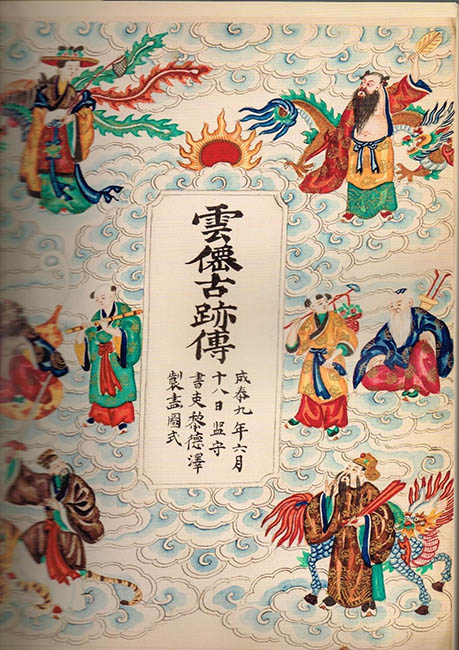 雲僊古跡傳
成泰九年六月
十八日监守
書吏黎德澤
製畫圖式